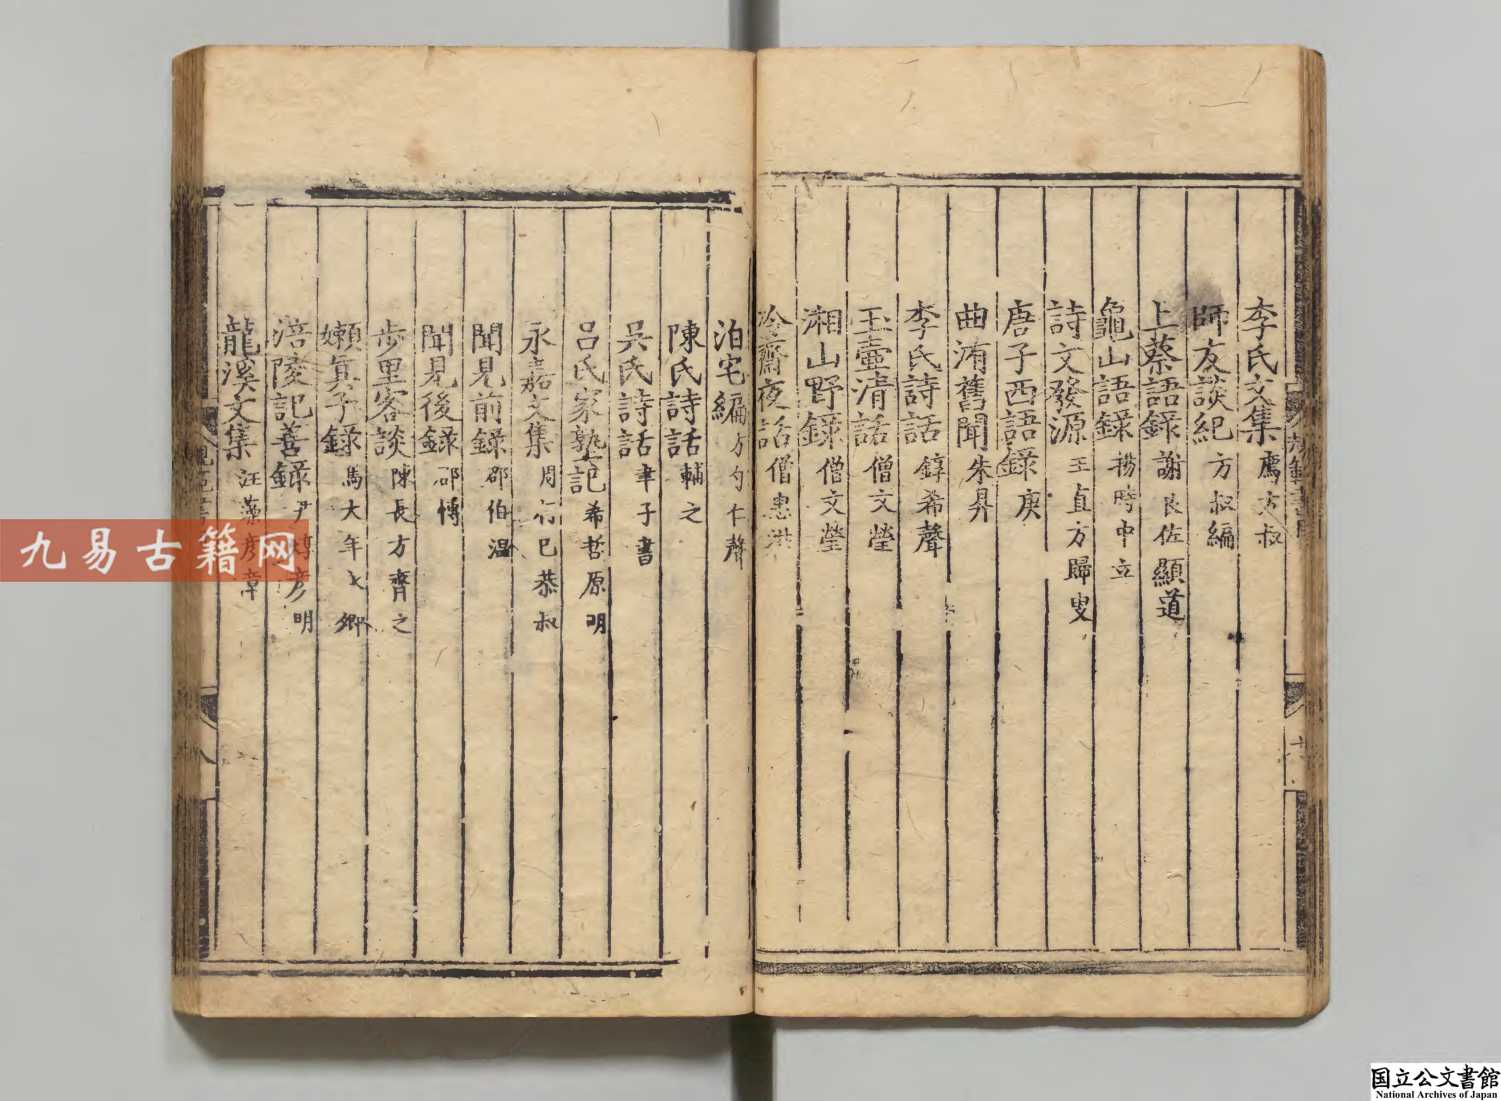 李氏文集廌方叔
師友談紀方叔編
上蔡語錄謝良佐顯道
龜山語錄楊時中立
詩文發源王直方歸叟
唐子西語錄庚
曲洧舊聞朱昇
李氏詩話錞希聲
玉壺清話僧文瑩
湘山野錄僧文瑩
冷齋夜話僧惠洪
泊宅編方勺仁聲
陳氏詩話輔之
吳氏詩話聿子書
呂氏家塾記希哲原明
永嘉文集周行巳恭叔
聞見前錄邵伯溫
聞見後錄邵博
步里客談陳長方齊之
嬾真子錄馬大年大卿
涪陵記善錄尹焞彥明
龍溪文集汪藻彥章
九易古籍网
国立公文書館
National Archives of Japan